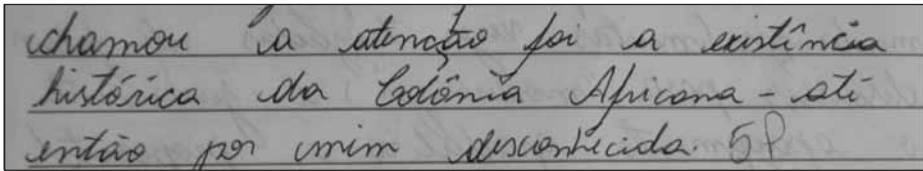 chamou a atenção foi a existência
histórica da Colônia Africana - até
então por mim desconhecida. 5P